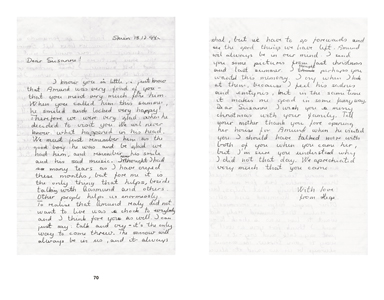 5min 19.12.94.
Dear Suzanne!
I know you so little, I just know
that Amund was very fond of you -
that you meant very much for him.
When you called him this summer
he smiled and looked very happy!
Therefore we were very glad when he
decided to visit you. We will never
know what happened in his head.
We must just remember him as the
good boy he was and be glad we
had him, and remember his smile
and his sad music.
so many tears as I have cryed
these months, but for me it is
the only thing that helps, beside
talking with Rasmund and others.
Other people helps us enormously.
To realise that Amund realy did not
want to live was a shock to everybody
and I think for you as well. I can
just say: talk and cry - it's the only
way to come threw. The sorrow will
always be in us, and it always
shal, but we have to go forewards and
see the good things we have left. Amund
will always be in our mind. I send
you some pictures from last christmas
and last summer. I thought perhaps you
wanted this memory. I cry when I look
at them, because I feel his sadness
and
it makes me good in some way.
Dear Suzanne! I wish you a merry
christmas with your family. Tell
your mother thank you for opening
her house for Amund when he visited
you. I should have talked more with
both of you when you came her,
but I'm sure you understood why
I did not that day. We apreciated
very much that you came.
With love
from
70